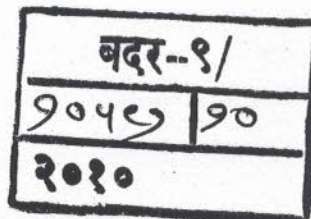 बदर--९/
१०५९ १०
२०१०